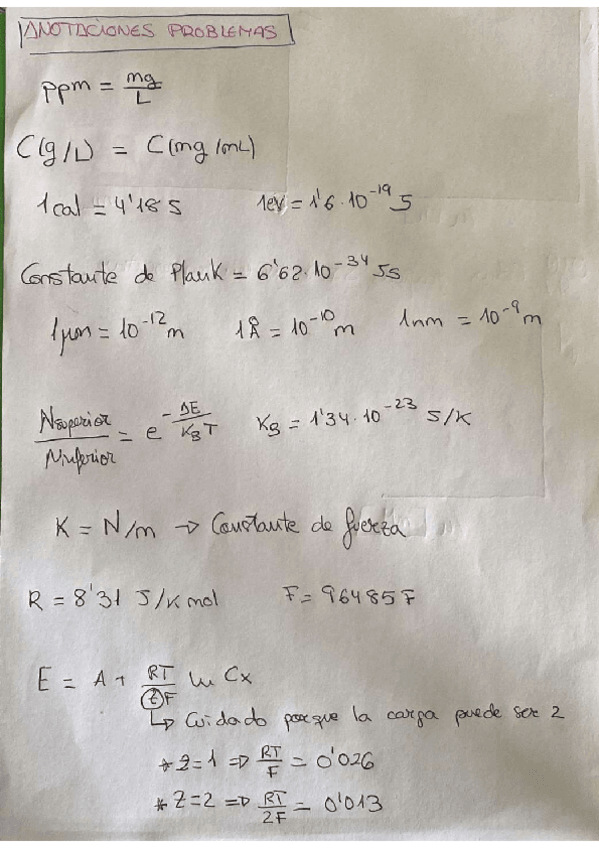 ANOTACIONES PROBLEMAS
ppm = mg/L
C(g/L) = C(mg/mL)
1cal = 4'18 J 1eV = 1'6·10^-19 J
Constante de Plank = 6'62·10^-34 Js
1μm = 10^-12 m 1Å = 10^-10 m 1nm = 10^-9 m
Nsuperior/Ninferior = e^(-ΔE/KBT) KB = 1'34·10^-23 J/K
K = N/m → Constante de fuerza
R = 8'31 J/K mol F = 96485 F
E = A + RT/zF ln Cx
↳ Cuidado porque la carga puede ser 2
* z=1 ⇒ RT/F = 0'026
* z=2 ⇒ RT/2F = 0'013